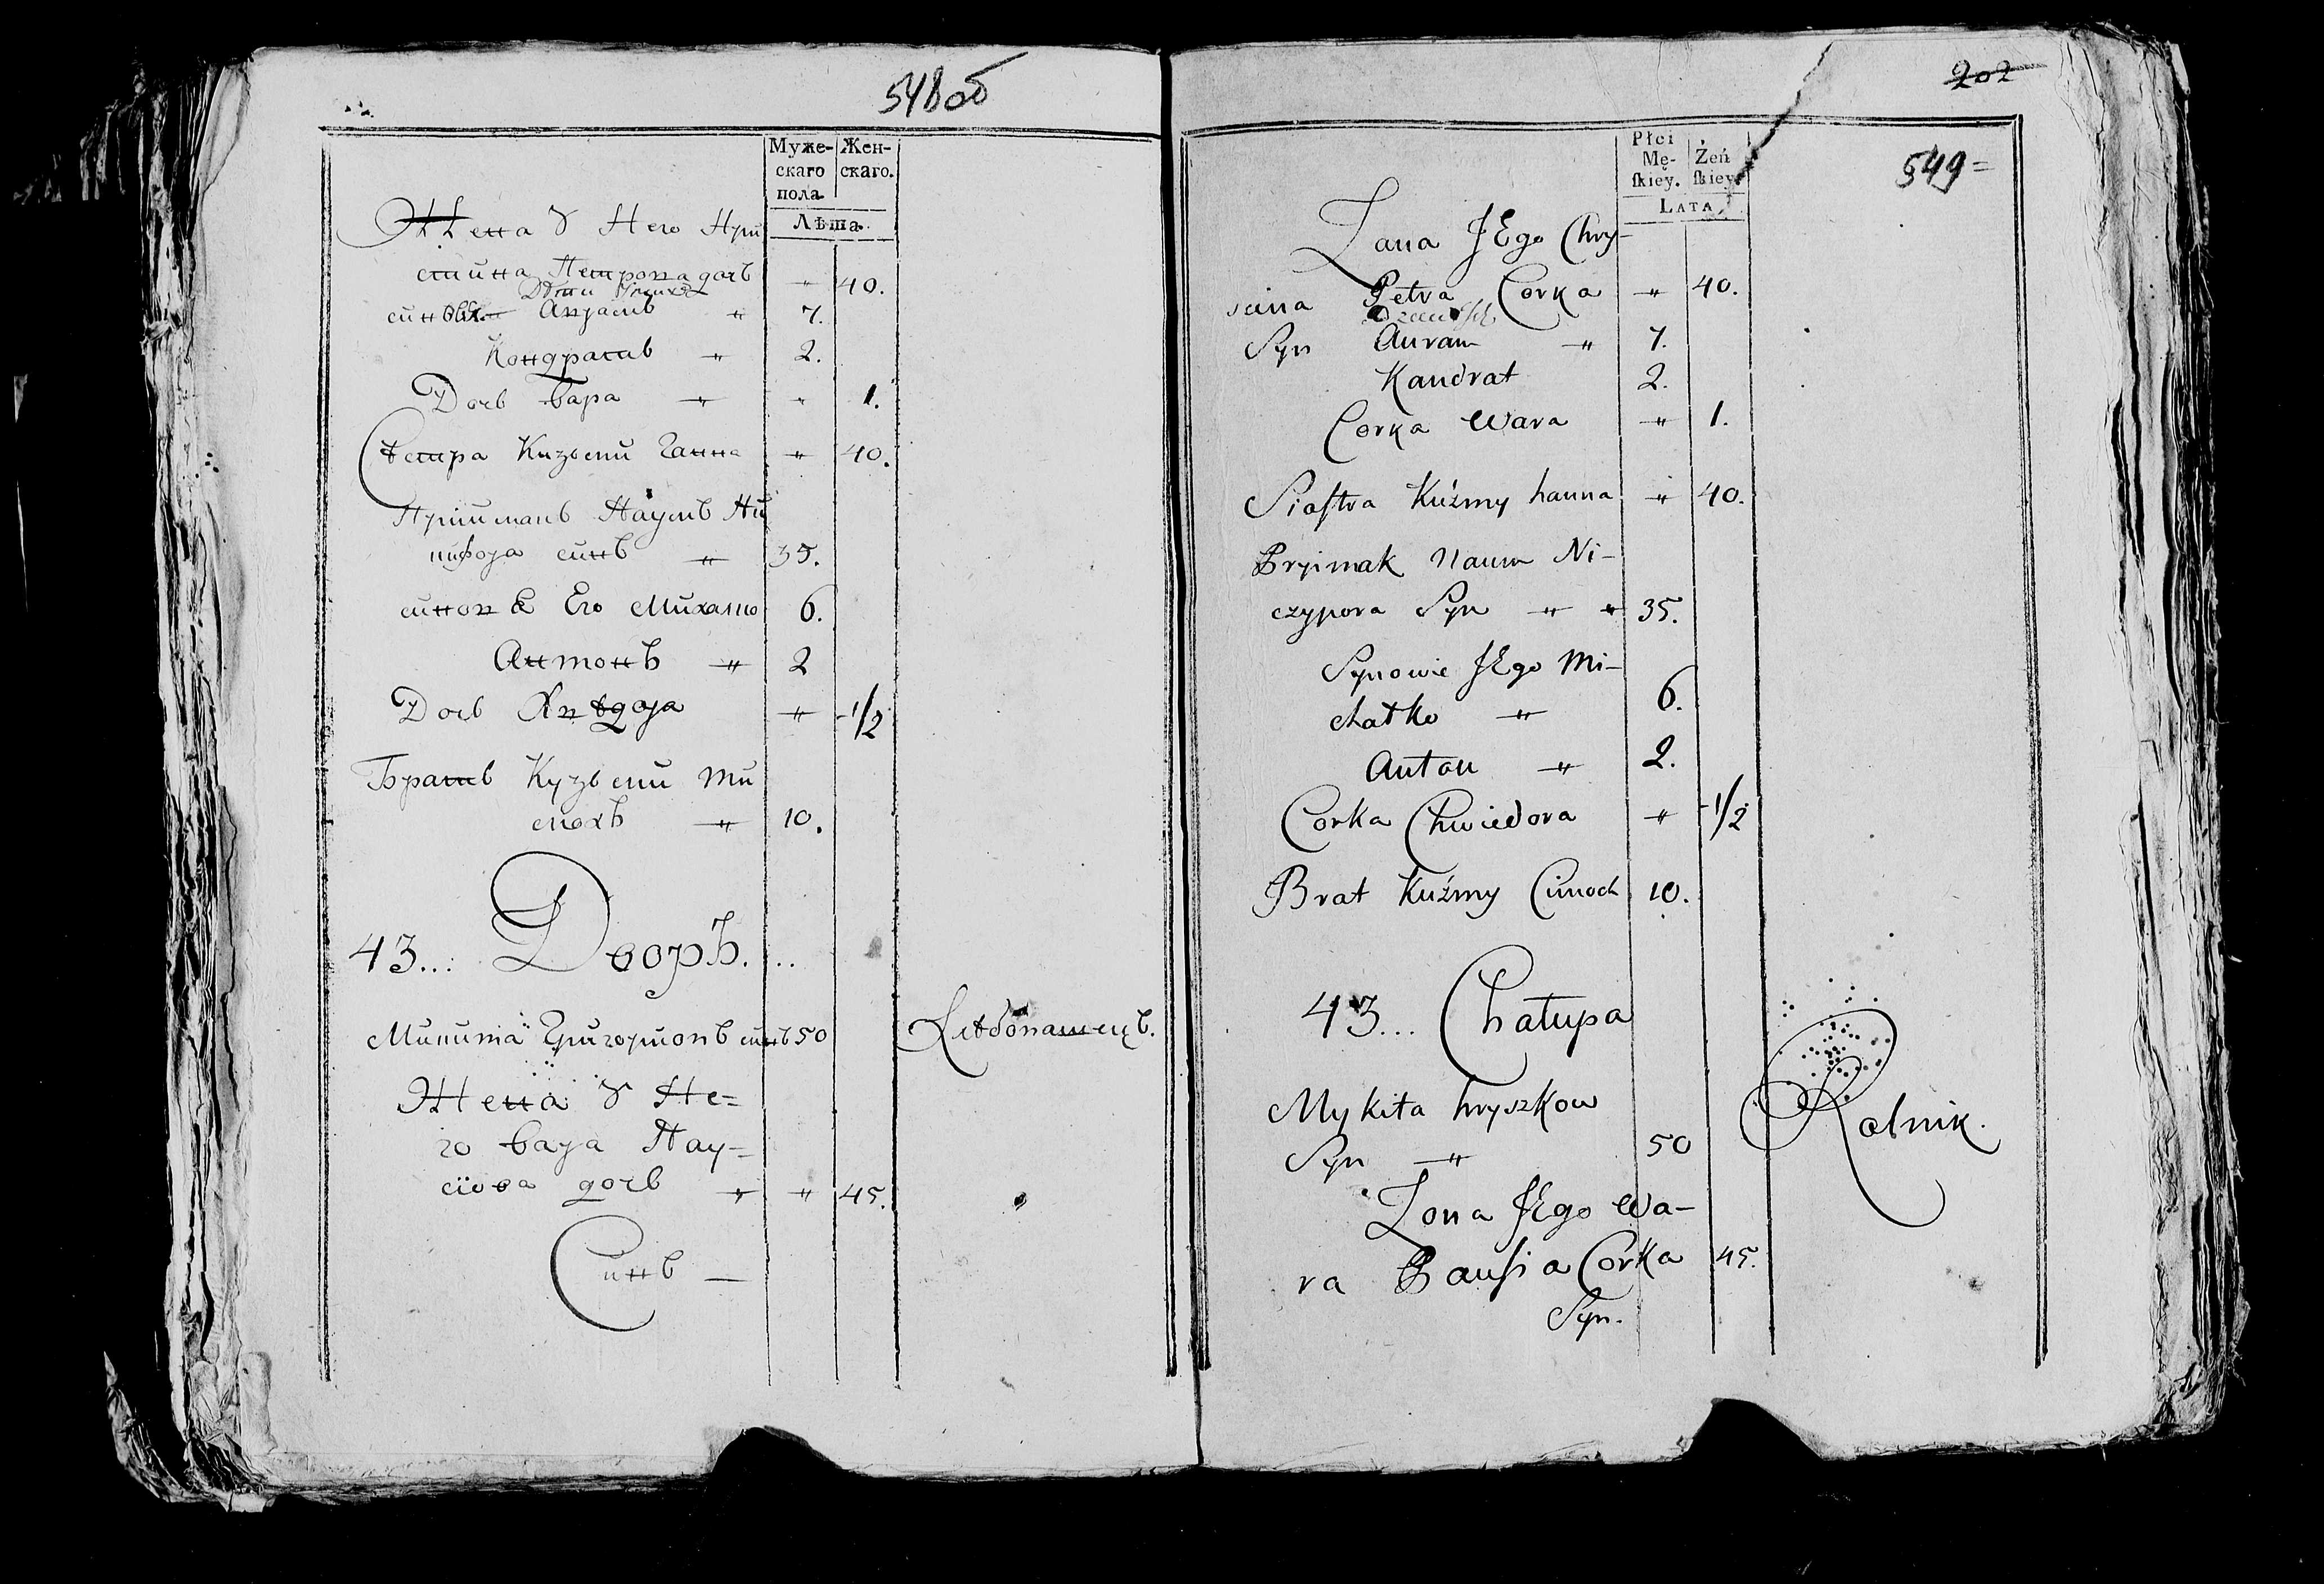 548об
Муже-
скаго
пола.
Жен-
скаго.
Лѣта.
Жена У Него Хри
стина Петрова дочь " 40.
Дѣти
Аврамъ " 7.
Кондратъ " 2.
Дочь Вара " " 1.
Сестра Кузьмы Ганна " 40.
Пріймакъ Наумъ Ни
чипора синъ " 35.
синовѣ Его Михалко 6.
Антонъ " 2
Дочь Хведора " 1/2
Братъ Кузьмы Ти
мохъ " 10.
43... Дворъ...
Микита Григорковъ синъ 50 Хлѣбопашецъ.
Жена У Не=
го Вара Пау=
сіова дочь " " 45.
Синъ —
202
549=
Płci
Mę-
ſkiey.
Żeń
ſkiey.
LATA
Żana JEgo Chry-
scina Petra Corka " 40.
Syn Auram " 7.
Kandrat 2.
Corka Wara " 1.
Siaſtra Kuźmy hanna " 40.
Pryimak Naum Ni-
czypora Syn " " 35.
Synowie JEgo Mi-
chałko " 6.
Anton " 2.
Corka Chwiedora " 1/2
Brat Kuźmy Cimoch 10.
43... Chałupa
Mykita hryszkow
Syn " 50 Rolnik.
Żona JEgo Wa-
ra Pauſia Corka 45.
Syn.